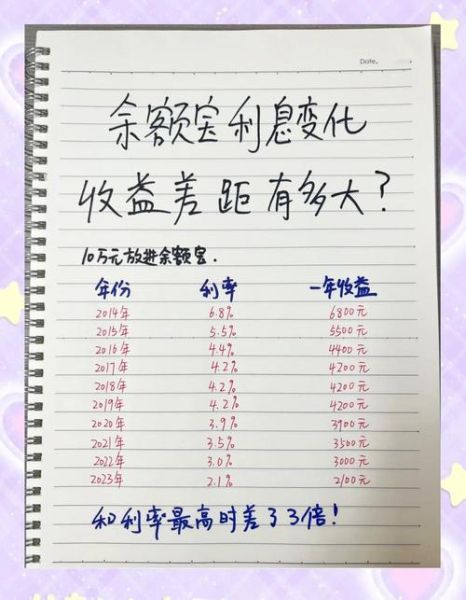 Date.
余额宝利息变化
收益差距有多大？
10万元放进余额宝.
年份 利率 一年收益
2014年 6.8% 6800元
2015年 5.5% 5500元
2016年 4.4% 4400元
2017年 4.2% 4200元
2018年 4.2% 4200元
2019年 4.2% 4200元
2020年 3.9% 3900元
2021年 3.5% 3500元
2022年 3.0% 3000元
2023年 2.1% 2100元
和利率最高时差了3倍！